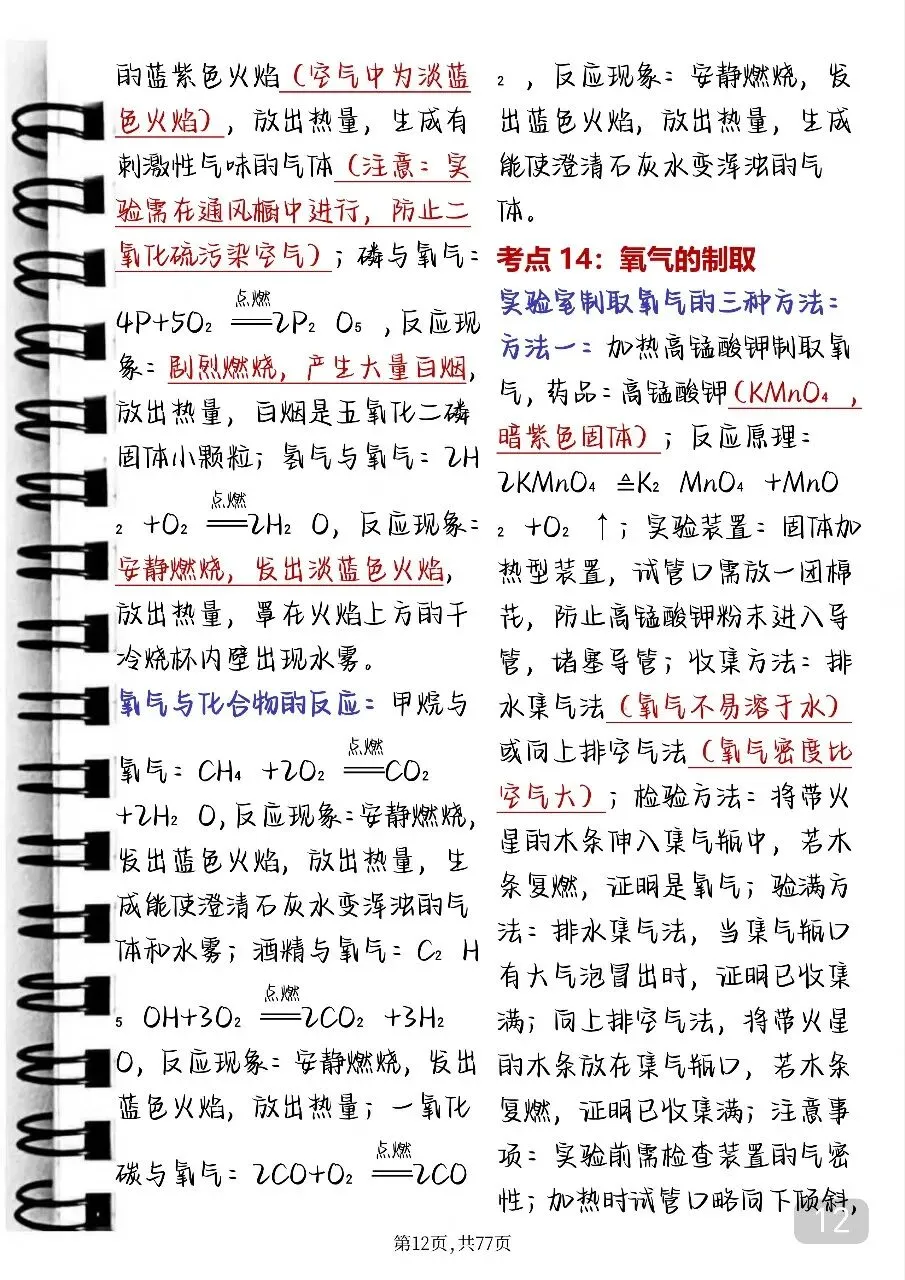 的蓝紫色火焰（空气中为淡蓝
色火焰），放出热量，生成有
刺激性气味的气体（注意：实
验需在通风橱中进行，防止二
氧化硫污染空气）；磷与氧气：
点燃
4P+5O₂ ══2P₂ O₅ ，反应现
象：剧烈燃烧，产生大量白烟，
放出热量，白烟是五氧化二磷
固体小颗粒；氢气与氧气：2H
点燃
₂ +O₂ ══2H₂ O，反应现象：
安静燃烧，发出淡蓝色火焰，
放出热量，罩在火焰上方的干
冷烧杯内壁出现水雾。
氧气与化合物的反应：甲烷与
点燃
氧气：CH₄ +2O₂ ══CO₂
+2H₂ O，反应现象：安静燃烧，
发出蓝色火焰，放出热量，生
成能使澄清石灰水变浑浊的气
体和水雾；酒精与氧气：C₂ H
点燃
₅ OH+3O₂ ══2CO₂ +3H₂
O，反应现象：安静燃烧，发出
蓝色火焰，放出热量；一氧化
点燃
碳与氧气：2CO+O₂ ══2CO
₂ ，反应现象：安静燃烧，发
出蓝色火焰，放出热量，生成
能使澄清石灰水变浑浊的气
体。
考点 14：氧气的制取
实验室制取氧气的三种方法：
方法一：加热高锰酸钾制取氧
气，药品：高锰酸钾（KMnO₄ ，
暗紫色固体）；反应原理：
2KMnO₄ ≙K₂ MnO₄ +MnO
₂ +O₂ ↑；实验装置：固体加
热型装置，试管口需放一团棉
花，防止高锰酸钾粉末进入导
管，堵塞导管；收集方法：排
水集气法（氧气不易溶于水）
或向上排空气法（氧气密度比
空气大）；检验方法：将带火
星的木条伸入集气瓶中，若木
条复燃，证明是氧气；验满方
法：排水集气法，当集气瓶口
有大气泡冒出时，证明已收集
满；向上排空气法，将带火星
的木条放在集气瓶口，若木条
复燃，证明已收集满；注意事
项：实验前需检查装置的气密
性；加热时试管口略向下倾斜，
12
第12页，共77页